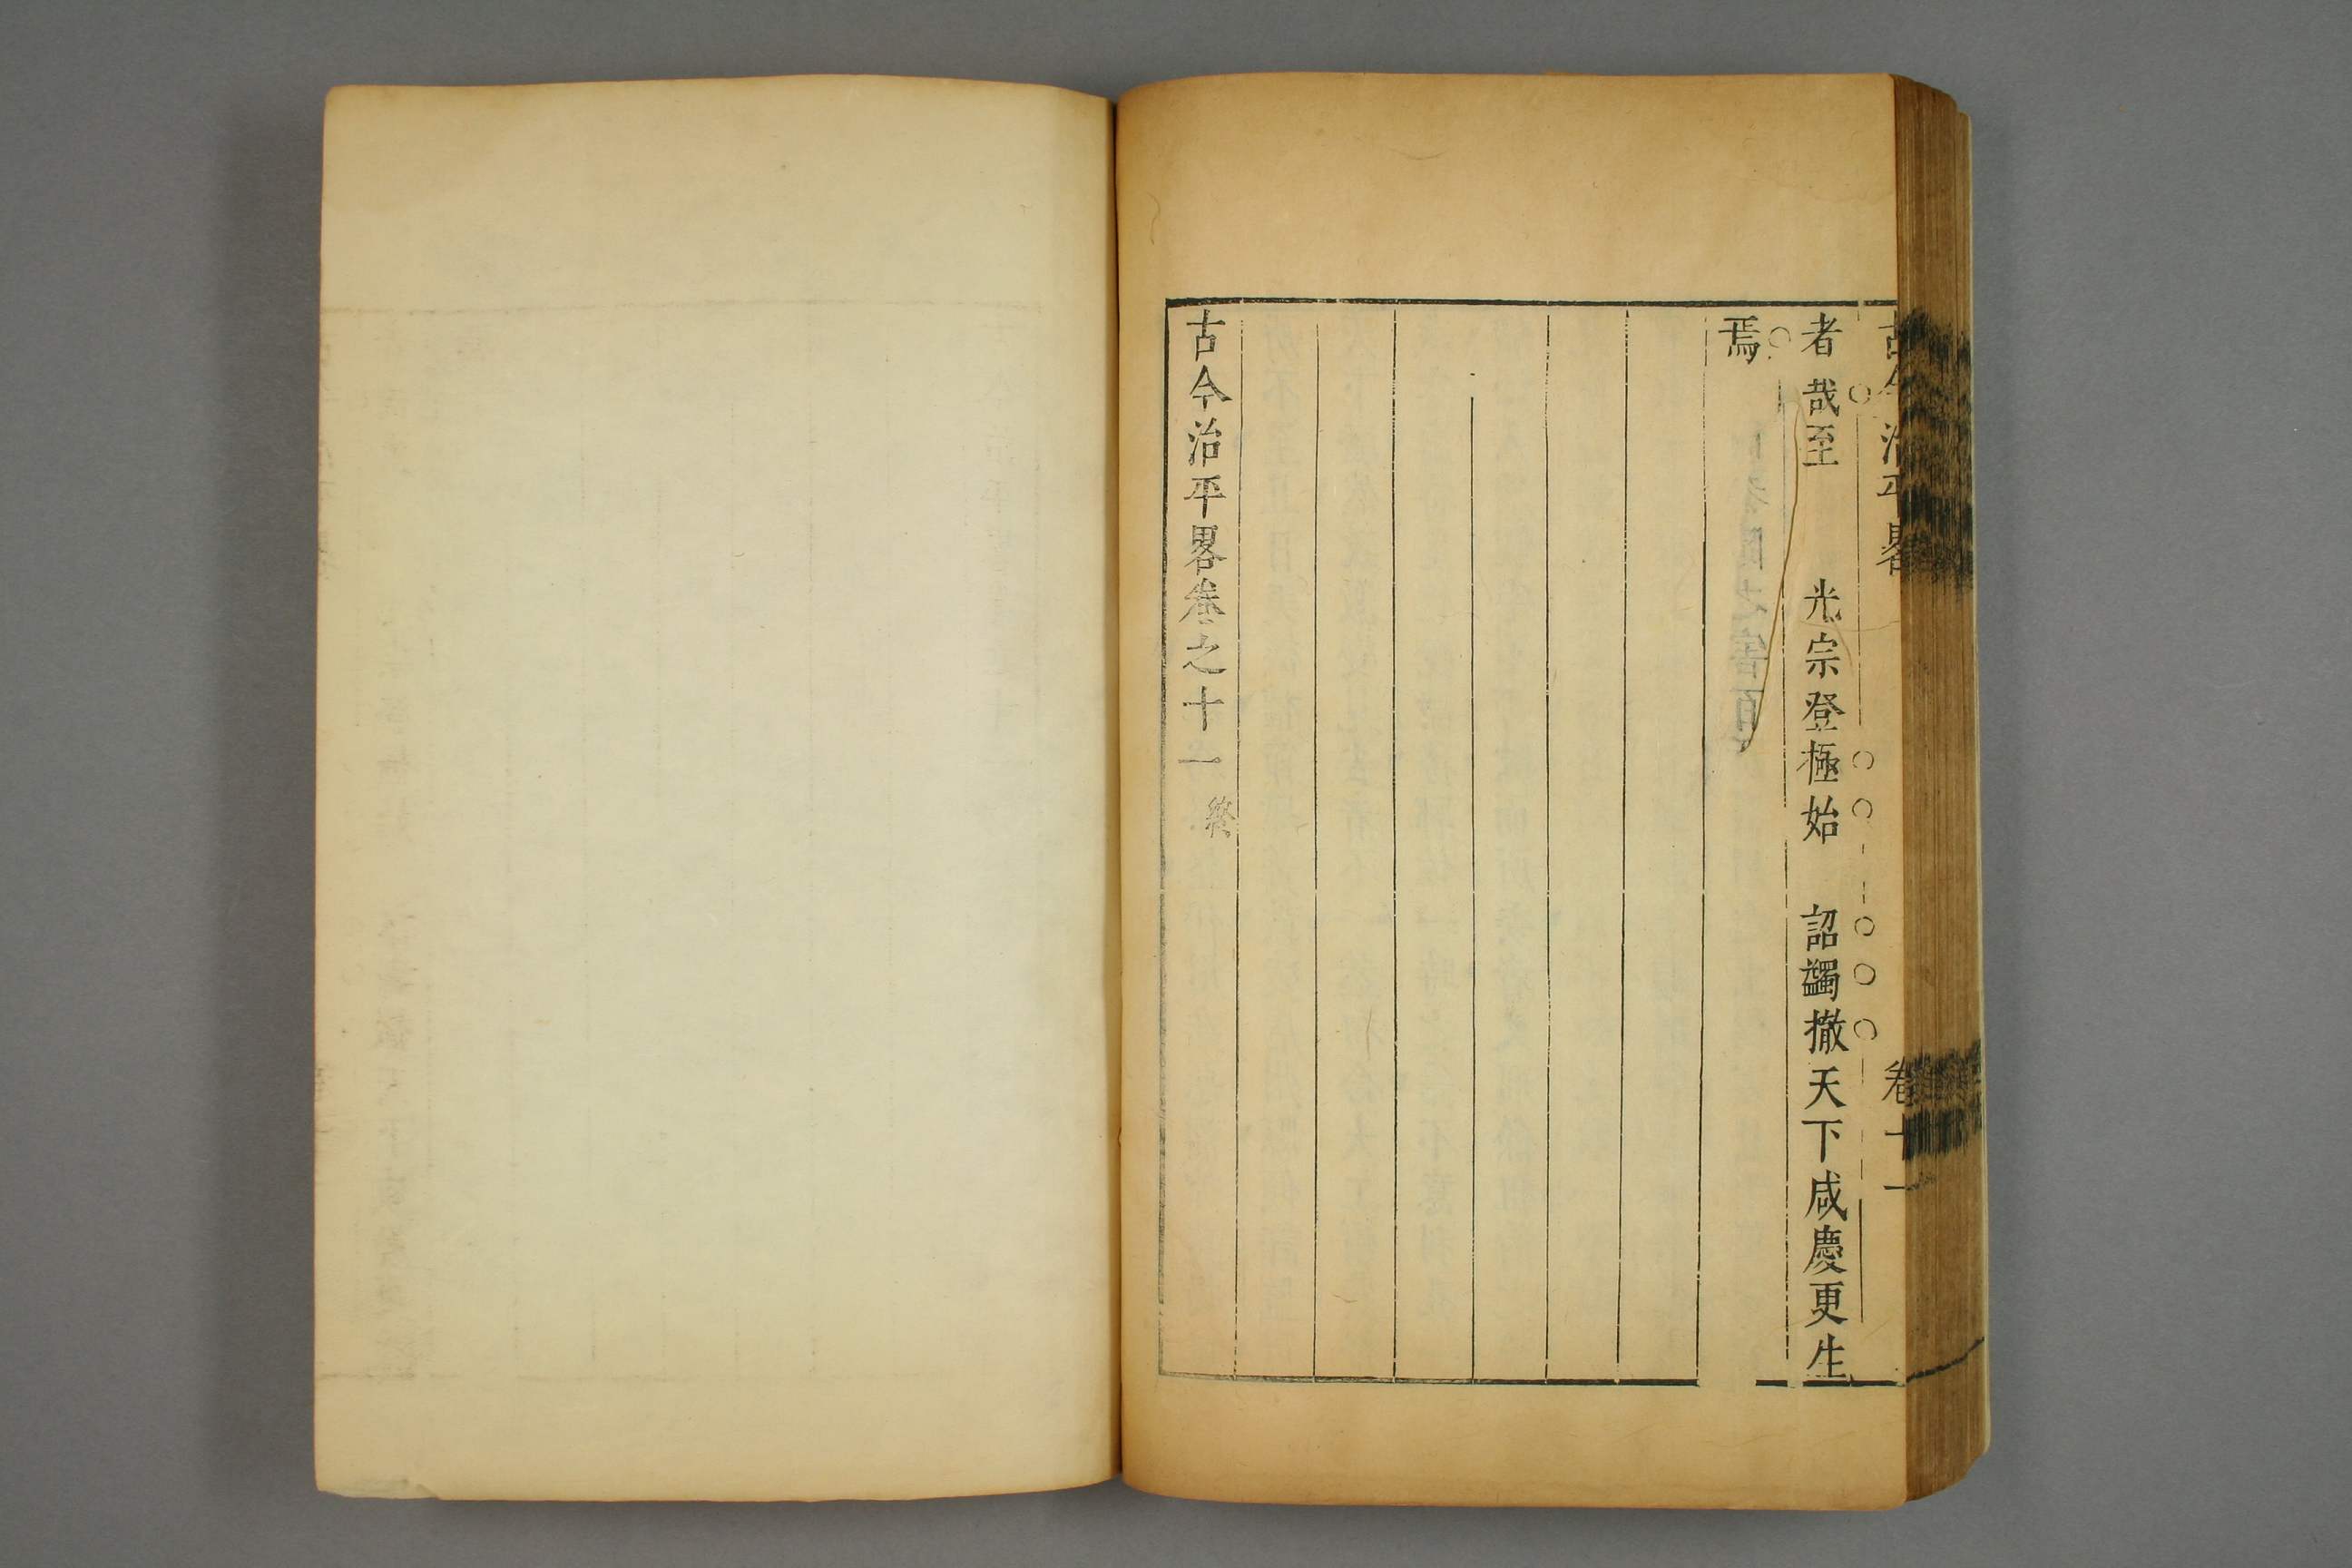 古今治平畧 卷十一
者哉至 光宗登極始 詔蠲撤天下咸慶更生
焉
古今治平畧卷之十一 終